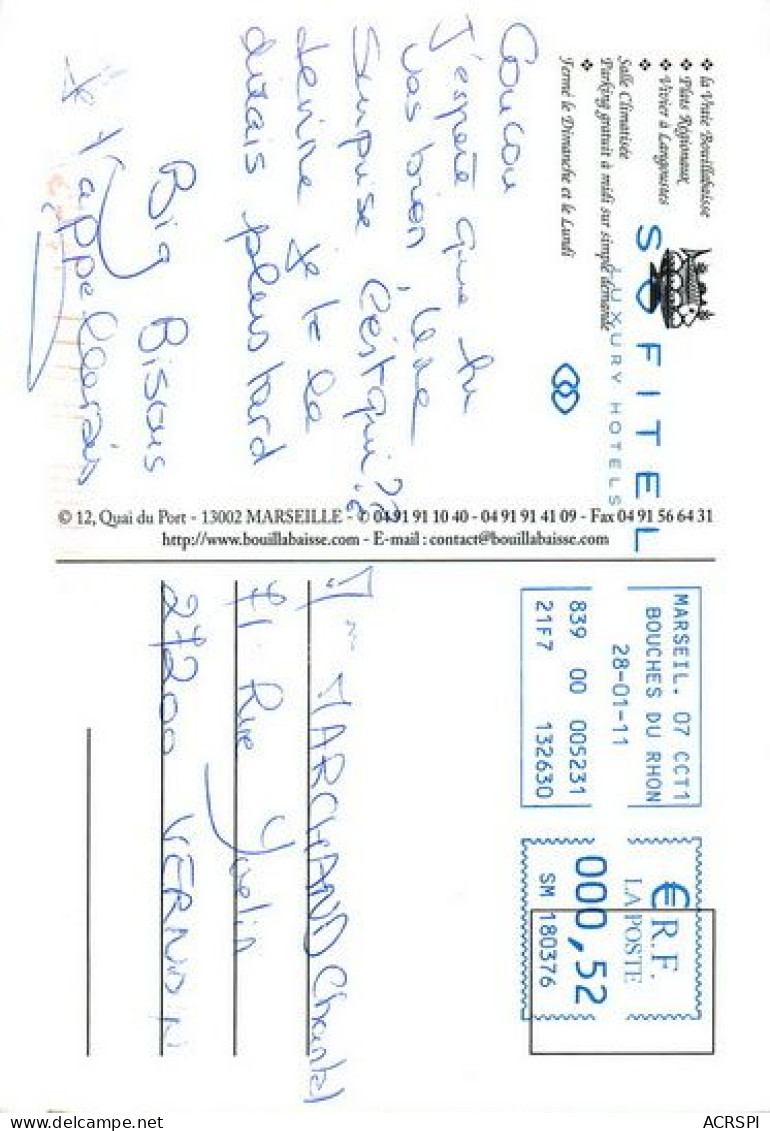 ❖ la Vraie Bouillabaisse
❖ Plats Régionaux
❖ Vivier à Langoustes
❖
Salle Climatisée
Parking gratuit à midi sur simple demande
❖
Fermé le Dimanche et le Lundi
SOFITEL
LUXURY HOTELS
Coucou
J'espère que tu
vas bien, une
Surprise C'est qui ??
devine je te le
dirais plus tard
Big Bisous
je t'appellerais
© 12, Quai du Port - 13002 MARSEILLE - ✆ 04 91 91 10 40 - 04 91 91 41 09 - Fax 04 91 56 64 31
http://www.bouillabaisse.com - E-mail : contact@bouillabaisse.com
MARSEIL. 07 CCT1
BOUCHES DU RHON
28-01-11
839 00 005231
21F7 132630
€ R.F.
LA POSTE
000,52
SM 180376
MARCHAND Chantal
71 Rue Yvelin
27200 VERNON
ACRSPI